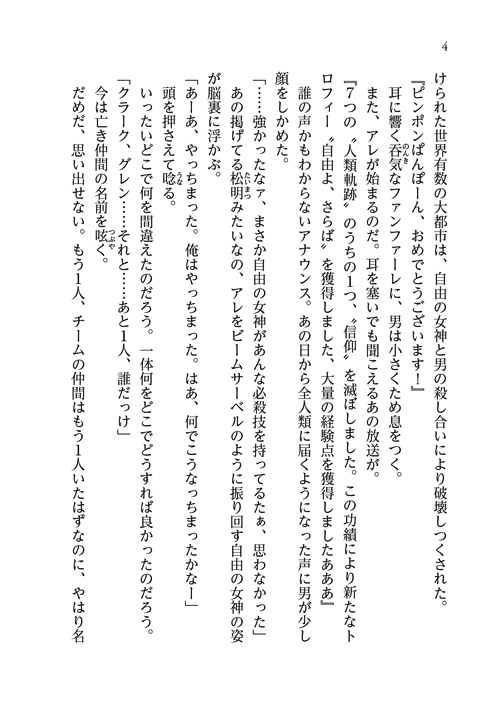 4
けられた世界有数の大都市は、自由の女神と男の殺し合いにより破壊しつくされた。
『ピンポンぱんぽーん、おめでとうございます！』
耳に響く呑気なファンファーレに、男は小さくため息をつく。
また、アレが始まるのだ。耳を塞いでも聞こえるあの放送が。
『７つの〝人類軌跡〟のうちの１つ、〝信仰〟を滅ぼしました。この功績により新たなト
ロフィー〝自由よ、さらば〟を獲得しました、大量の経験点を獲得しましたあああ』
誰の声かもわからないアナウンス。あの日から全人類に届くようになった声に男が少し
顔をしかめた。
「……強かったなァ、まさか自由の女神があんな必殺技を持ってるたぁ、思わなかった」
あの掲げてる松明みたいなの、アレをビームサーベルのように振り回す自由の女神の姿
が脳裏に浮かぶ。
「あーあ、やっちまった。俺はやっちまった。はあ、何でこうなっちまったかなー」
頭を押さえて唸る。
いったいどこで何を間違えたのだろう。一体何をどこでどうすれば良かったのだろう。
「クラーク、グレン……それと……あと１人、誰だっけ」
今は亡き仲間の名前を呟く。
だめだ、思い出せない。もう１人、チームの仲間はもう１人いたはずなのに、やはり名